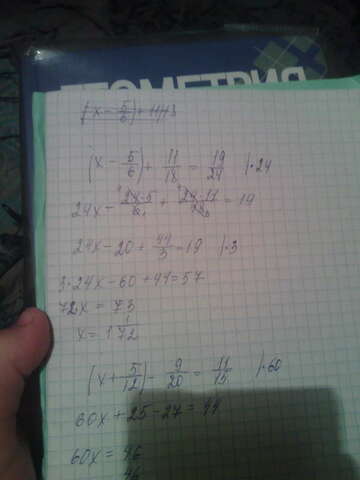 ГЕОМЕТРИЯ
(x - 5/6) + 11/13
(x - 5/6) + 11/18 = 19/24 |·24
24x - 24·5/6 + 24·11/18 = 19
24x - 20 + 44/3 = 19 |·3
3·24x - 60 + 44 = 57
72x = 73
x = 1 1/72
(x + 5/12) - 9/20 = 11/15 |·60
60x + 25 - 27 = 44
60x = 46
46